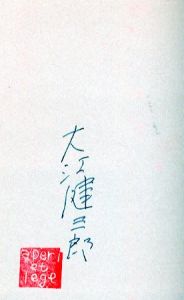 大江健三郎
aperi
et
lege